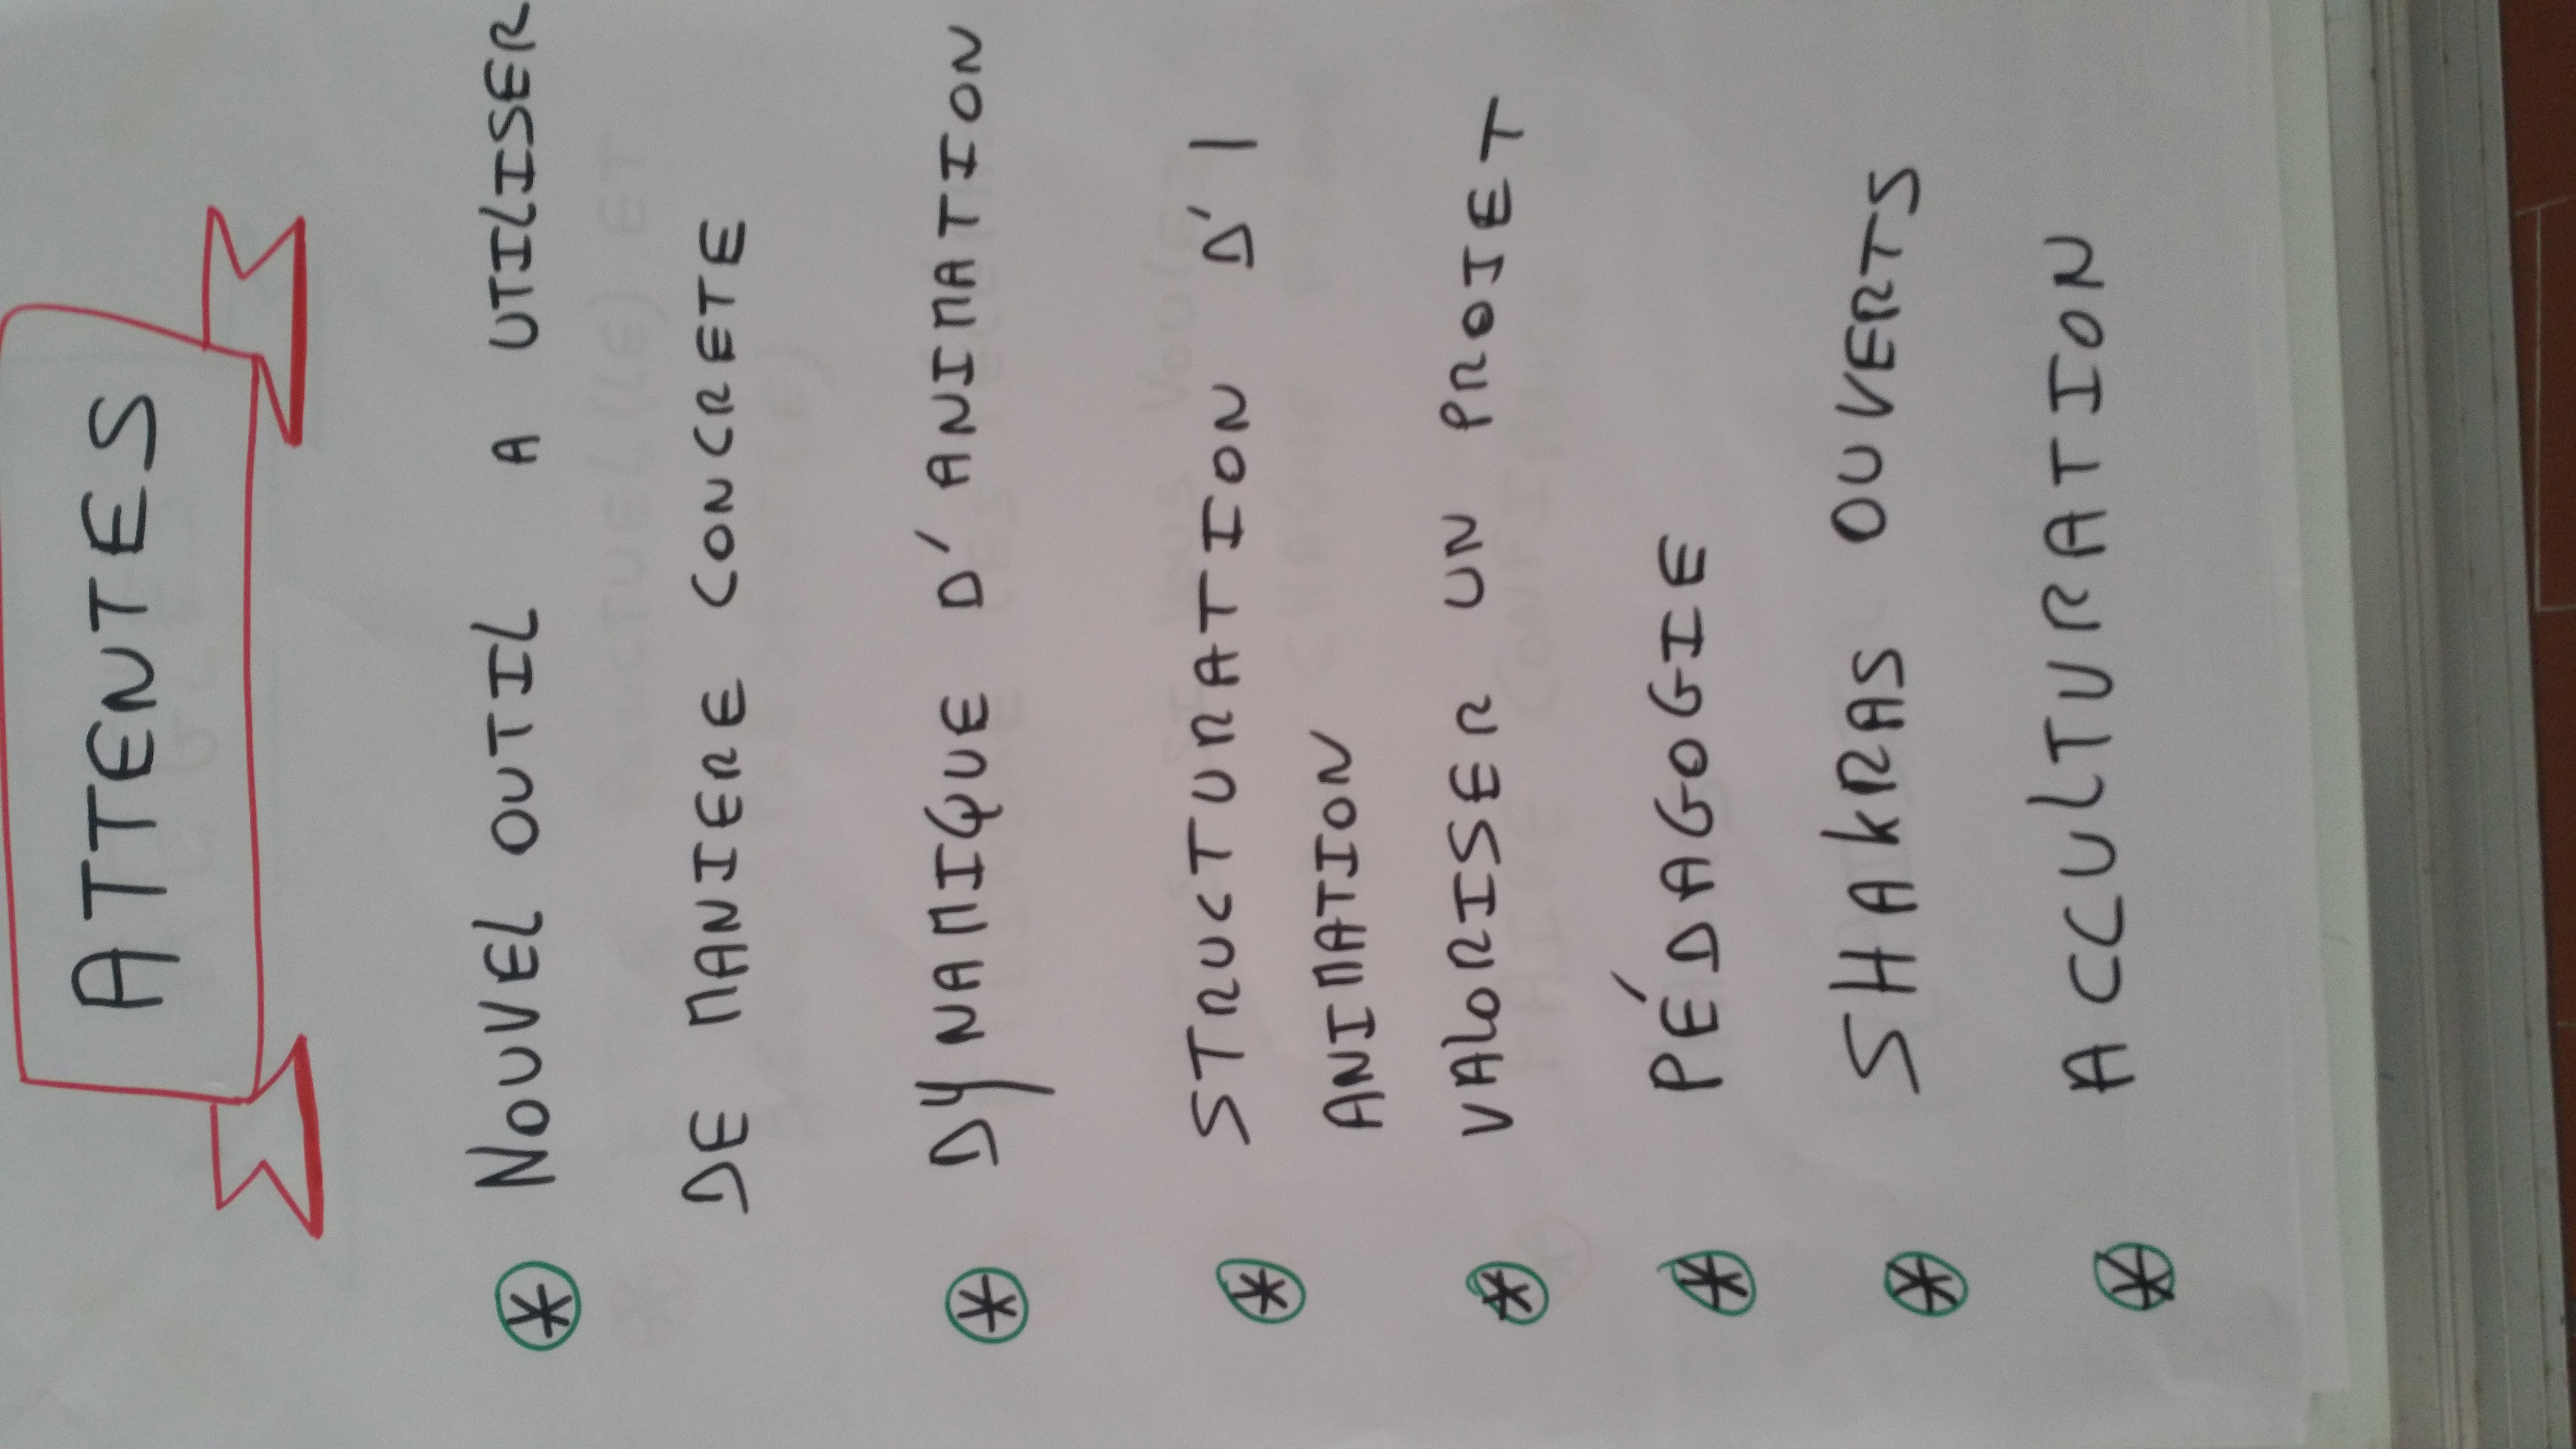 ATTENTES
* NOUVEL OUTIL A UTILISER
DE MANIERE CONCRETE
* DYNAMIQUE D'ANIMATION
* STRUCTURATION D'1
ANIMATION
* VALORISER UN PROIET
* PÉDAGOGIE
* SHAKRAS OUVERTS
* ACCULTURATION